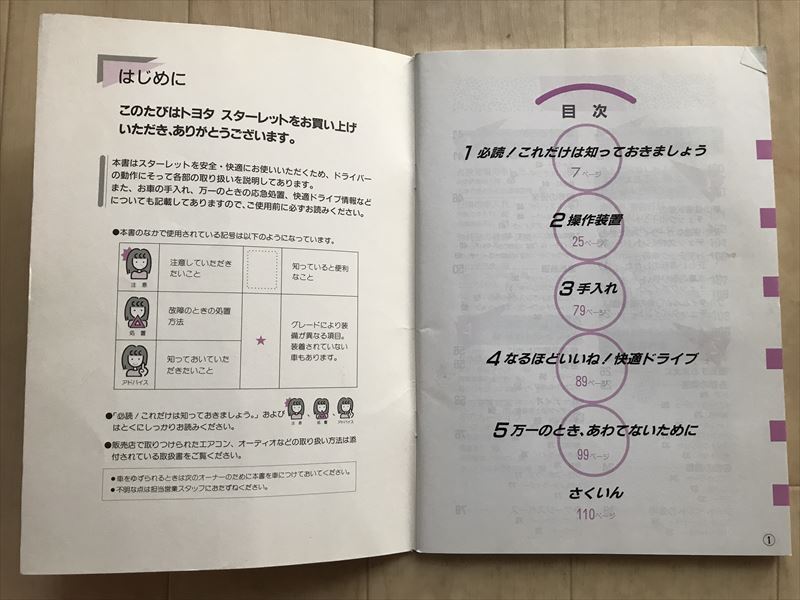 はじめに
このたびはトヨタ スターレットをお買い上げ
いただき、ありがとうございます。
本書はスターレットを安全・快適にお使いいただくため、ドライバー
の動作にそって各部の取り扱いを説明してあります。
また、お車の手入れ、万一のときの応急処置、快適ドライブ情報など
についても記載してありますので、ご使用前に必ずお読みください。
●本書のなかで使用されている記号は以下のようになっています。
注意
注意していただき
たいこと
知っていると便利
なこと
処置
故障のときの処置
方法
★
グレードにより装
備が異なる項目。
装着されていない
車もあります。
アドバイス
知っておいていた
だきたいこと
●「必読！これだけは知っておきましょう。」および 注意 、 処置 、 アドバイス
はとくにしっかりお読みください。
●販売店で取りつけられたエアコン、オーディオなどの取り扱い方法は添
付されている取扱書をご覧ください。
●車をゆずられるときは次のオーナーのために本書を車につけておいてください。
●不明な点は担当営業スタッフにおたずねください。
目次
1 必読！これだけは知っておきましょう
7ページ
2 操作装置
25ページ
3 手入れ
79ページ
4 なるほどいいね！快適ドライブ
89ページ
5 万一のとき、あわてないために
99ページ
さくいん
110ページ
①